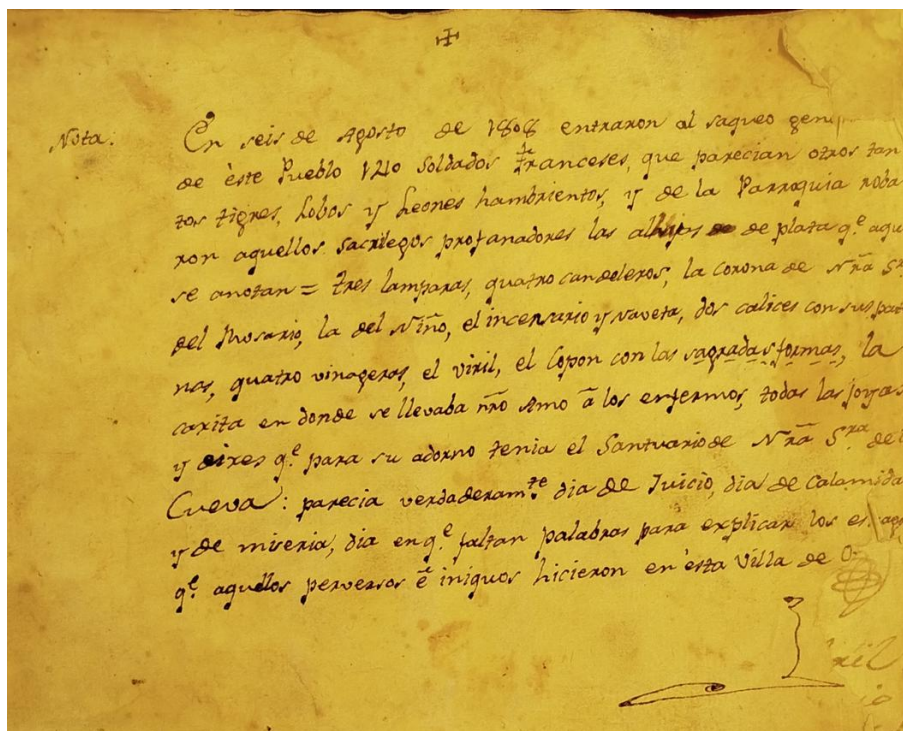 Nota: En seis de Agosto de 1808 entraron al saqueo gen
de èste Pueblo 1210 Soldados de franceses, que parecian otros tan
tos tigres, Lobos y Leones hambrientos, y de la Parroquia roba
ron aquellos sacrilegos profanadores las alhajas de plata q.e aqu
se anotan = tres lamparas, quatro candeleros, la corona de Nra Sr
del Rosario, la del Niño, el incensario y naveta, dos calices con sus pat
nas, quatro vinageras, el viril, el Copon con las sagradas formas, la
caxita en donde se llevaba nro Amo â los enfermos, todas las joyas
y dixes q.e para su adorno tenia el Santuario de Nra Sra de l
Cueva: parecia verdaderam.te dia de Juicio, dia de Calamida
y de miseria, dia en q.e faltan palabras para explicar los
q.e aquellos perversos ê iniquos hicieron en ésta Villa de